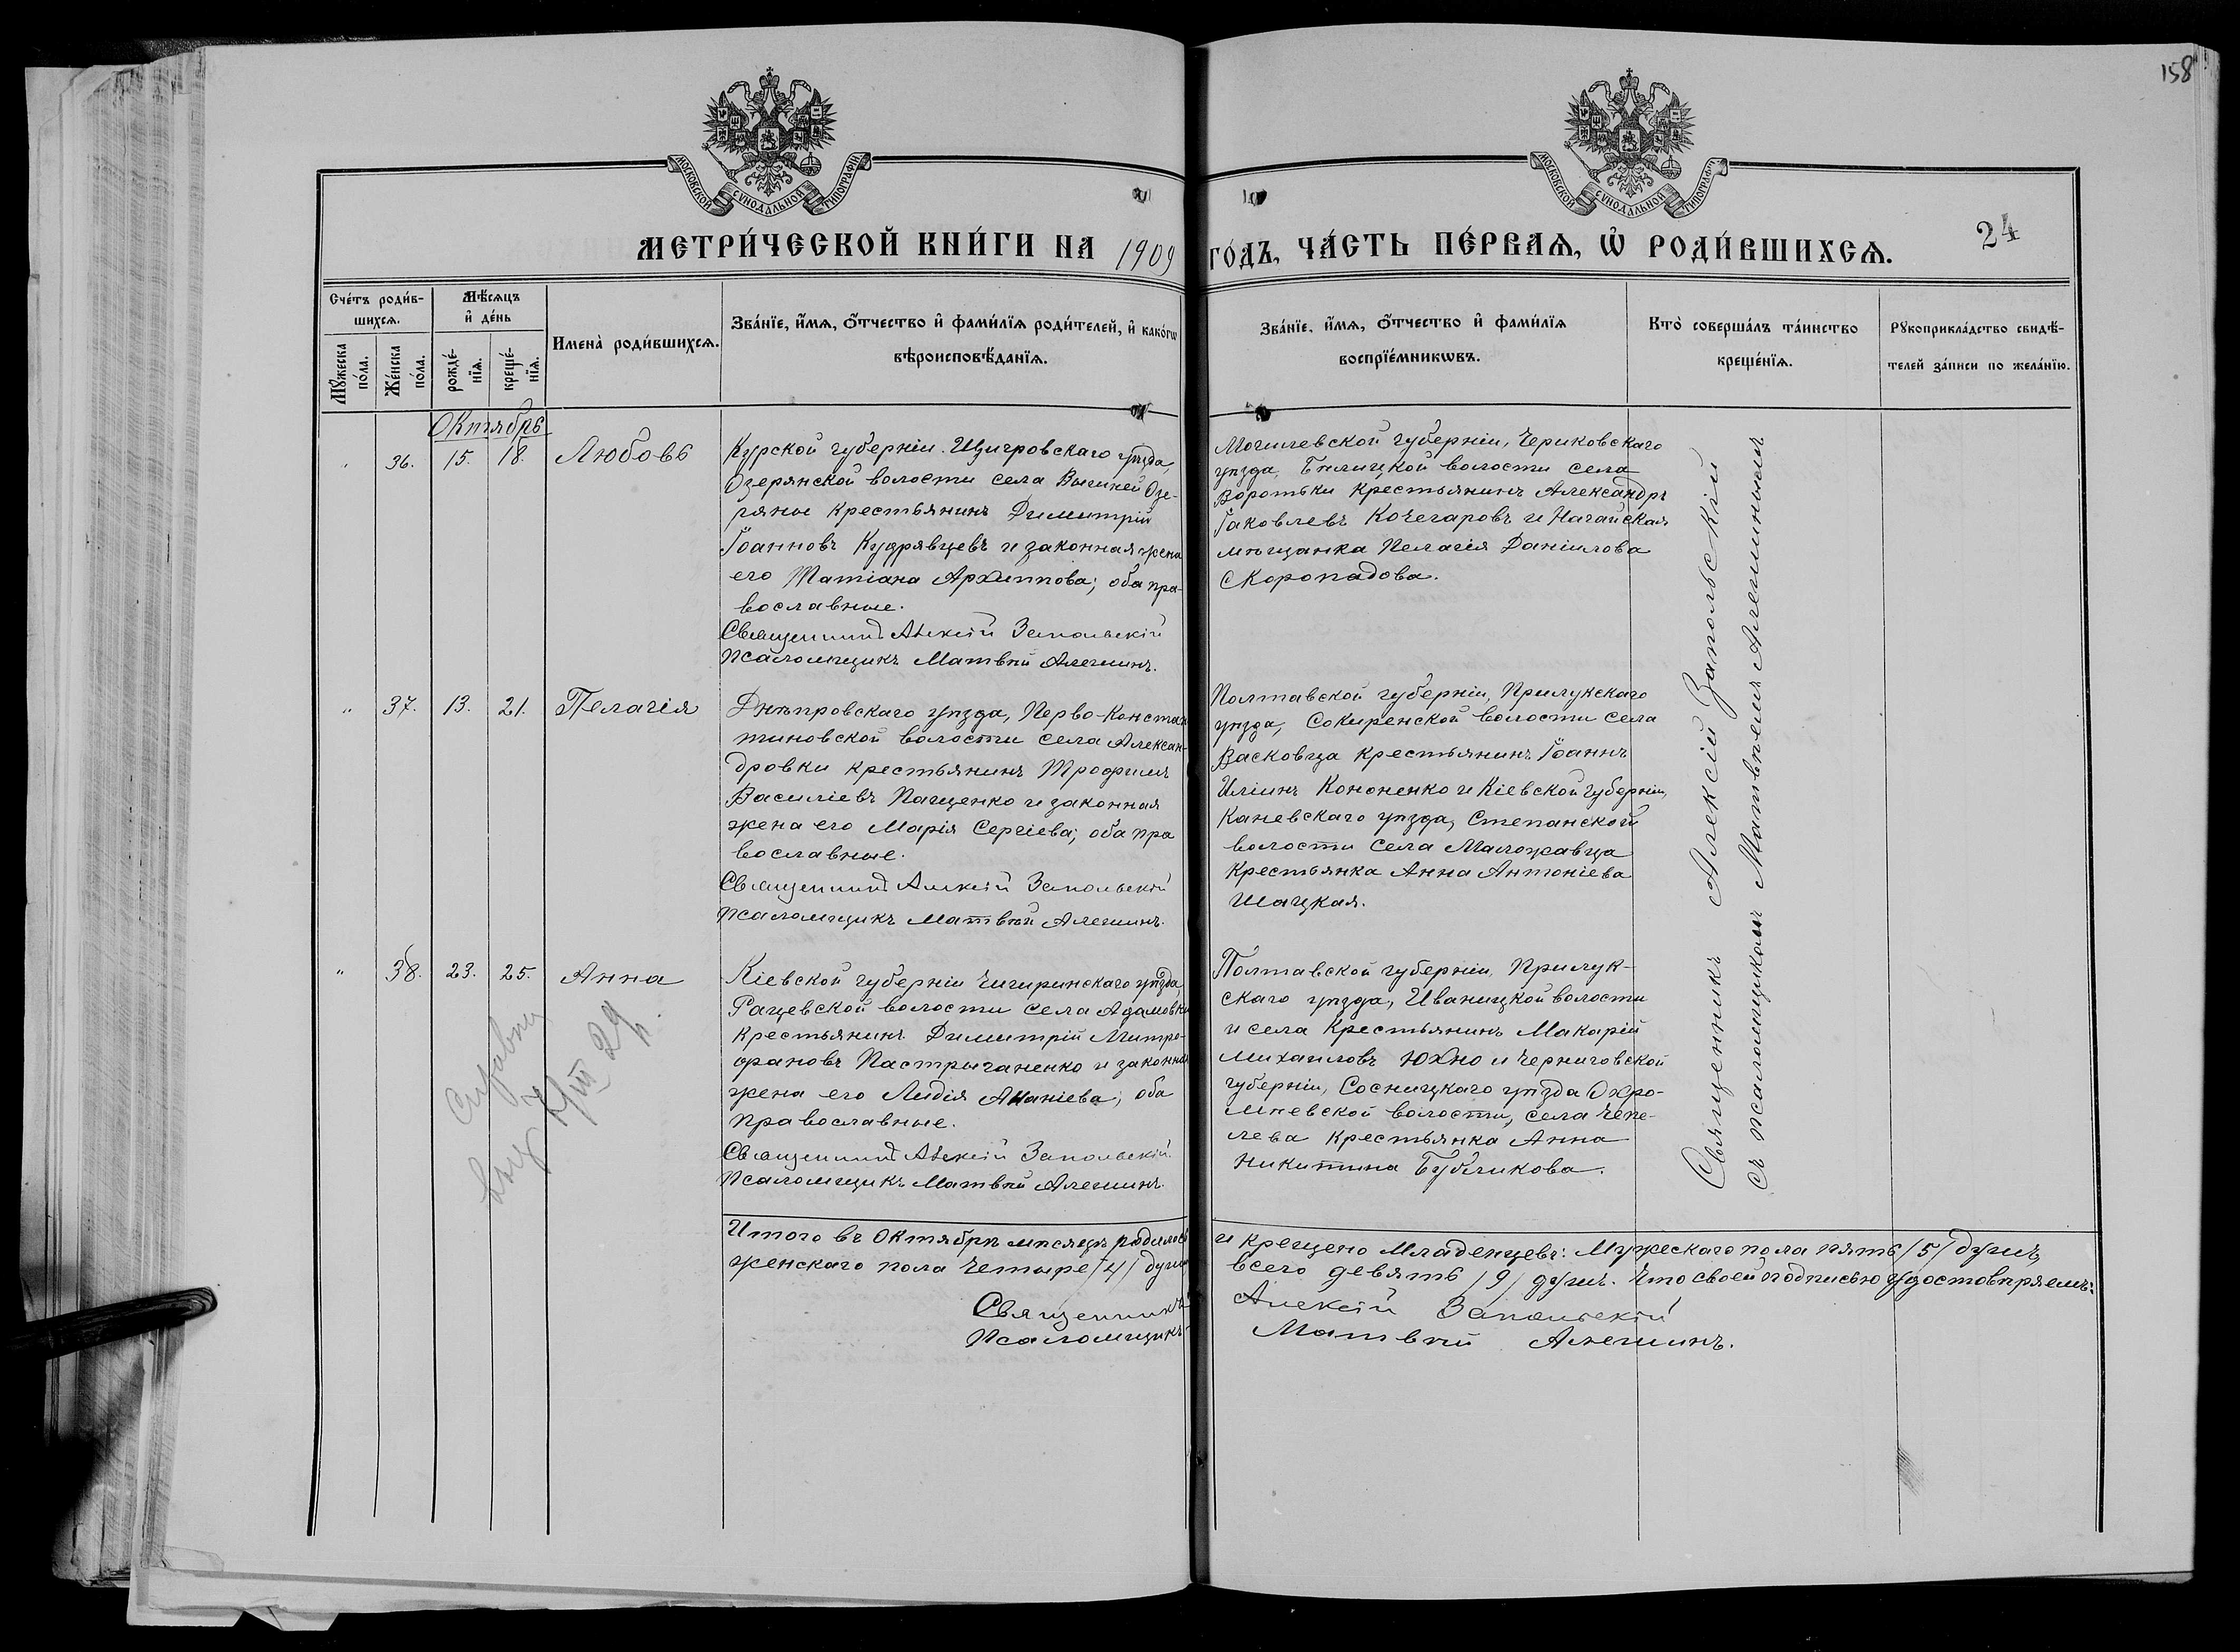 158
МОСКОВСКОЙ СѴНОДАЛЬНОЙ ТИПОГРАФІИ
МОСКОВСКОЙ СѴНОДАЛЬНОЙ ТИПОГРАФІИ
МЕТРИ́ЧЕСКОЙ КНИ́ГИ НА 1909 ГО́ДЪ, ЧА́СТЬ ПЕ́РВАѦ, Ѡ҆ РОДИ́ВШИХСѦ.
24
Сче́тъ роди́в-
шихсѧ.
Мѣ́сѧцъ
и҆ де́нь
Мꙋ́жеска
по́ла.
Же́нска
по́ла.
рожде́-
нїѧ.
креще́-
нїѧ.
Имена̀ роди́вшихсѧ.
Зва́нїе, и҆́мѧ, ѻ҆́тчество и҆ фами́лїѧ роди́телей, и҆ како́гѡ
вѣроисповѣ́данїѧ.
Зва́нїе, и҆́мѧ, ѻ҆́тчество и҆ фами́лїѧ
воспрїе́мникѡвъ.
Кто̀ соверша́лъ та́инство
креще́нїѧ.
Рꙋкоприкла́дство свидѣ́-
телей за́писи по жела́нїю.
Октябрь
" 36. 15. 18. Любовь
Курской губерніи. Щигровскаго уѣзда,
Озерянской волости села Вышней Озе-
ряные крестьянинъ Димитрій
Іоанновъ Кудрявцевъ и законная жена
его Татіана Архиппова; оба пра-
вославные.
Священникъ Алексій Запольскій
Псаломщикъ Матвѣй Алешинъ.
Могилевской губерніи, Чериковскаго
уѣзда, Бѣлицкой волости села
Воротьки крестьянинъ Александръ
Іаковлевъ Кочегаровъ и Ногайская
мѣщанка Пелагія Даніилова
Скоропадова.
" 37. 13. 21. Пелагія
Днѣпровскаго уѣзда, Перво-Констан
тиновской волости села Алексан-
дровки крестьянинъ Трофимъ
Василіевъ Пащенко и законная
жена его Марія Сергіева; оба пра
вославные.
Священникъ Алексій Запольскій
Псаломщикъ Матвѣй Алешинъ.
Полтавской губерніи, Прилукскаго
уѣзда, Сокиренской волости села
Васковца крестьянинъ Іоаннъ
Иліинъ Кононенко и Кіевской губерніи,
Каневскаго уѣзда, Степанской
волости села Маложавца
крестьянка Анна Антоніева
Шацкая.
" 38. 23. 25. Анна
Кіевской губерніи Чигиринскаго уѣзда,
Рацевской волости села Адамовки
крестьянинъ Димитрій Митро-
фановъ Пастрыганенко и законная
жена его Лидія Ананіева; оба
православные.
Священникъ Алексій Запольскій
Псаломщикъ Матвѣй Алешинъ.
Полтавской губерніи, Прилук-
скаго уѣзда, Иваницкой волости
и села крестьянинъ Макарій
Михаиловъ Юхно и Черниговской
губерніи, Сосницкаго уѣзда Охро-
мѣевской волости, села Чепе-
лева крестьянка Анна
Никитина Бубликова.
Священникъ Алексій Запольскій
съ псаломщикомъ Матвѣемъ Алешинымъ
Справка
выд 7/III 29
Итого въ Октябрѣ мѣсяцѣ родилось и крещено младенцевъ: Мужескаго пола пять /5/ душъ,
женскаго пола четыре /4/ душъ всего девять /9/ душъ. Что своей подписью удостовѣряемъ:
Священникъ Алексій Запольскій
Псаломщикъ Матвѣй Алешинъ.